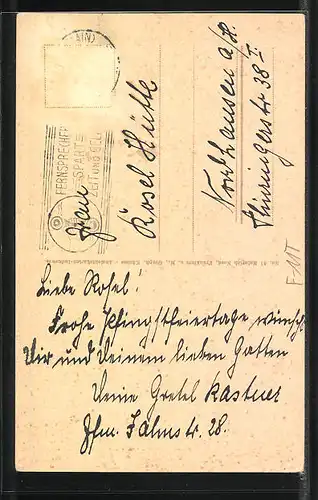 MAIN)
FERNSPRECHER
SPART
ZEIT UND GELD
Frau
Rösel Hütte
Nordhausen a/H.
Thüringerstr 38 I
F-11T
Liebe Rösel!
Frohe Pfingstfeiertage wünscht
Dir und Deinem lieben Gatten
Deine Gretel Kastner
Ffm. Salmstr. 28.